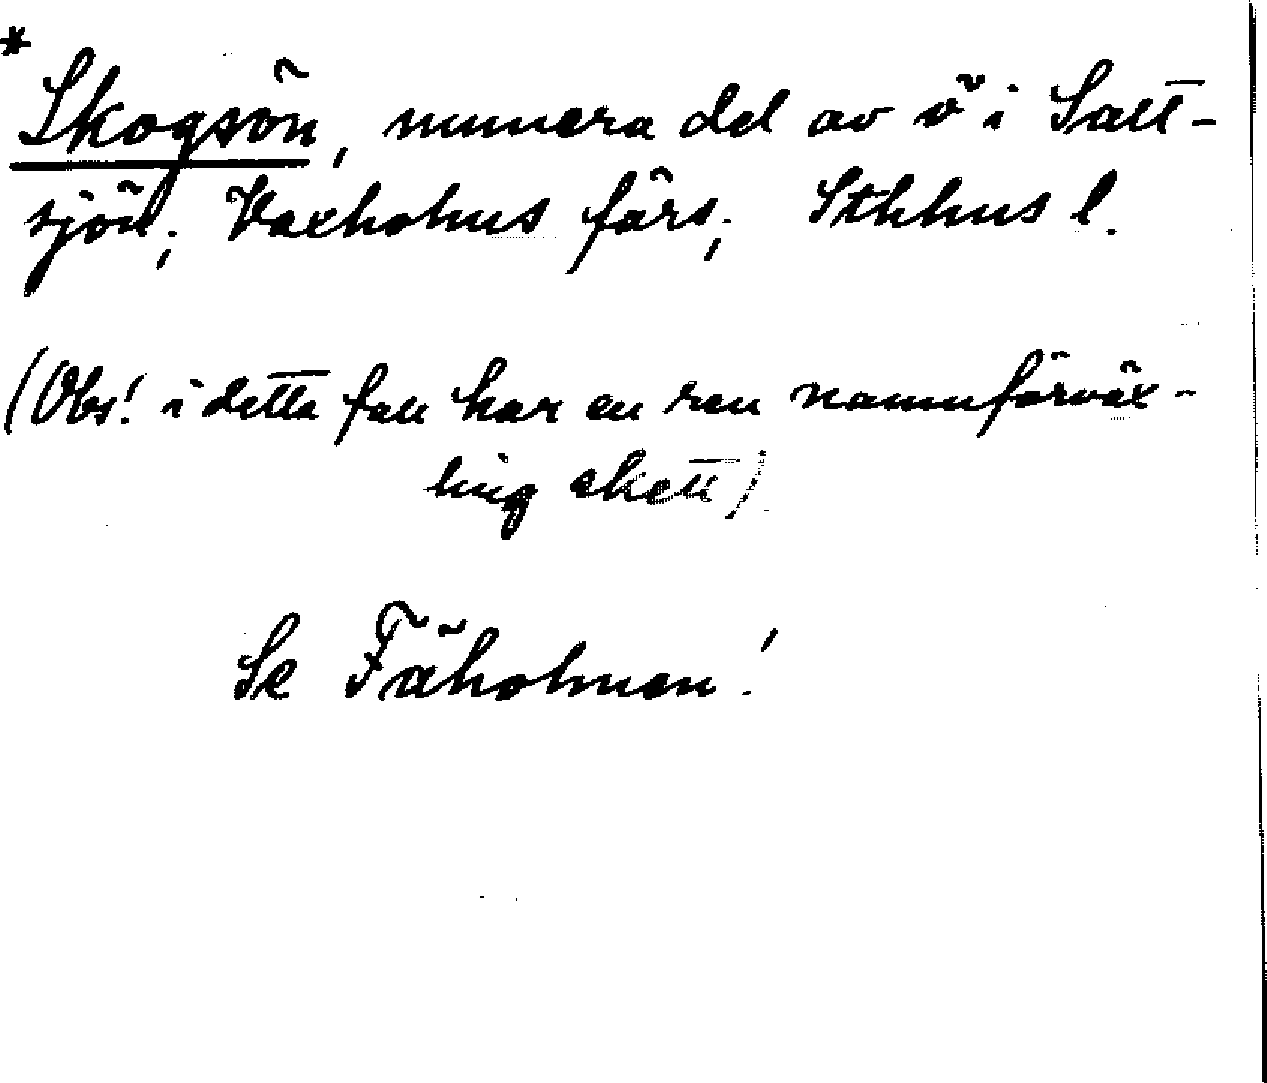 *
Skogsön, numera del av ö i Salt-
sjön; Vaxholms förs; Sthlms l.
(Obs! i detta fall har en ren namnförväx-
ling skett)
Se Fäholmen!